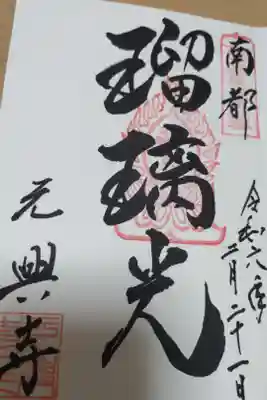 南都
令和六年
二月二十一日
瑠璃光
元興寺